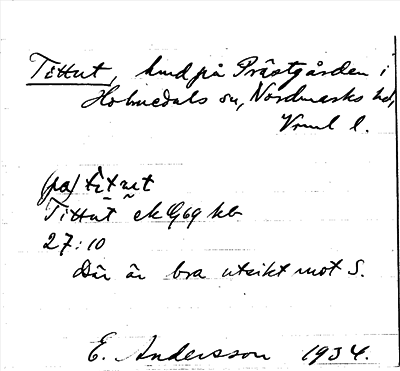 Tittut, hmd på Prästgården i
Holmedals sn, Nordmarks hd,
Vrml l.
(pa) titut
Tittut ek G69 kb
27:10
Där är bra utsikt mot S.
E. Andersson 1934.